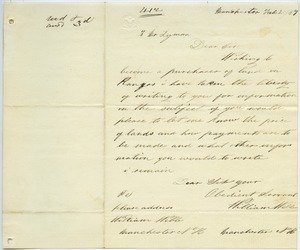 Manchester
Dear Sir
Wishing to
become a purchaser of land in
Kanzas i have taken the liberty
of writing to you for information
on the subject if you would
please to let me know the price
of lands and how payments are to
be made and what other infor
mation you would to write
i remain
Dear Sir your
Obedient Servant
William
please address
William
Manchester N H
Manchester N H